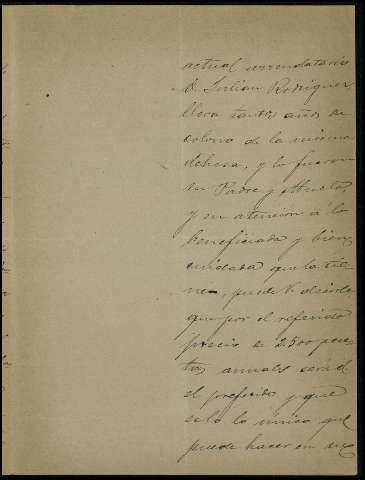 actual arrendatario
D. Julian Rodriguez
lleva tantos años de
colono de la misma
dehesa, y lo fueron
su Padre y Abuelo,
y en atención á lo
beneficiada y bien
cuidada que la tie-
ne, puede V. decirle
que por el referido
precio de 2500 pese
tas anuales será el
el preferido y que
esto lo unico que
puede hacer en su